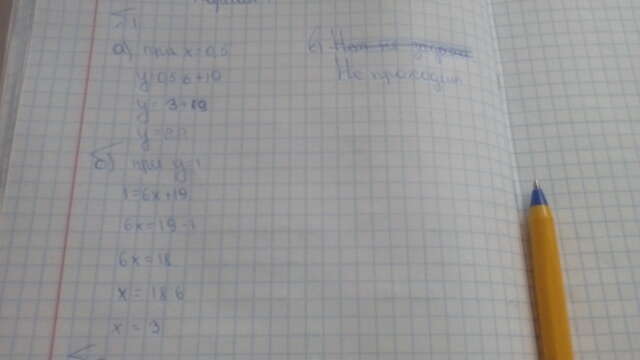 а) при x=0,5
y=0,5·6+19
y=3+19
y=22
б) при y=1
1=6x+19
6x=19-1
6x=18
x=18:6
x=3
в)
Не проходит